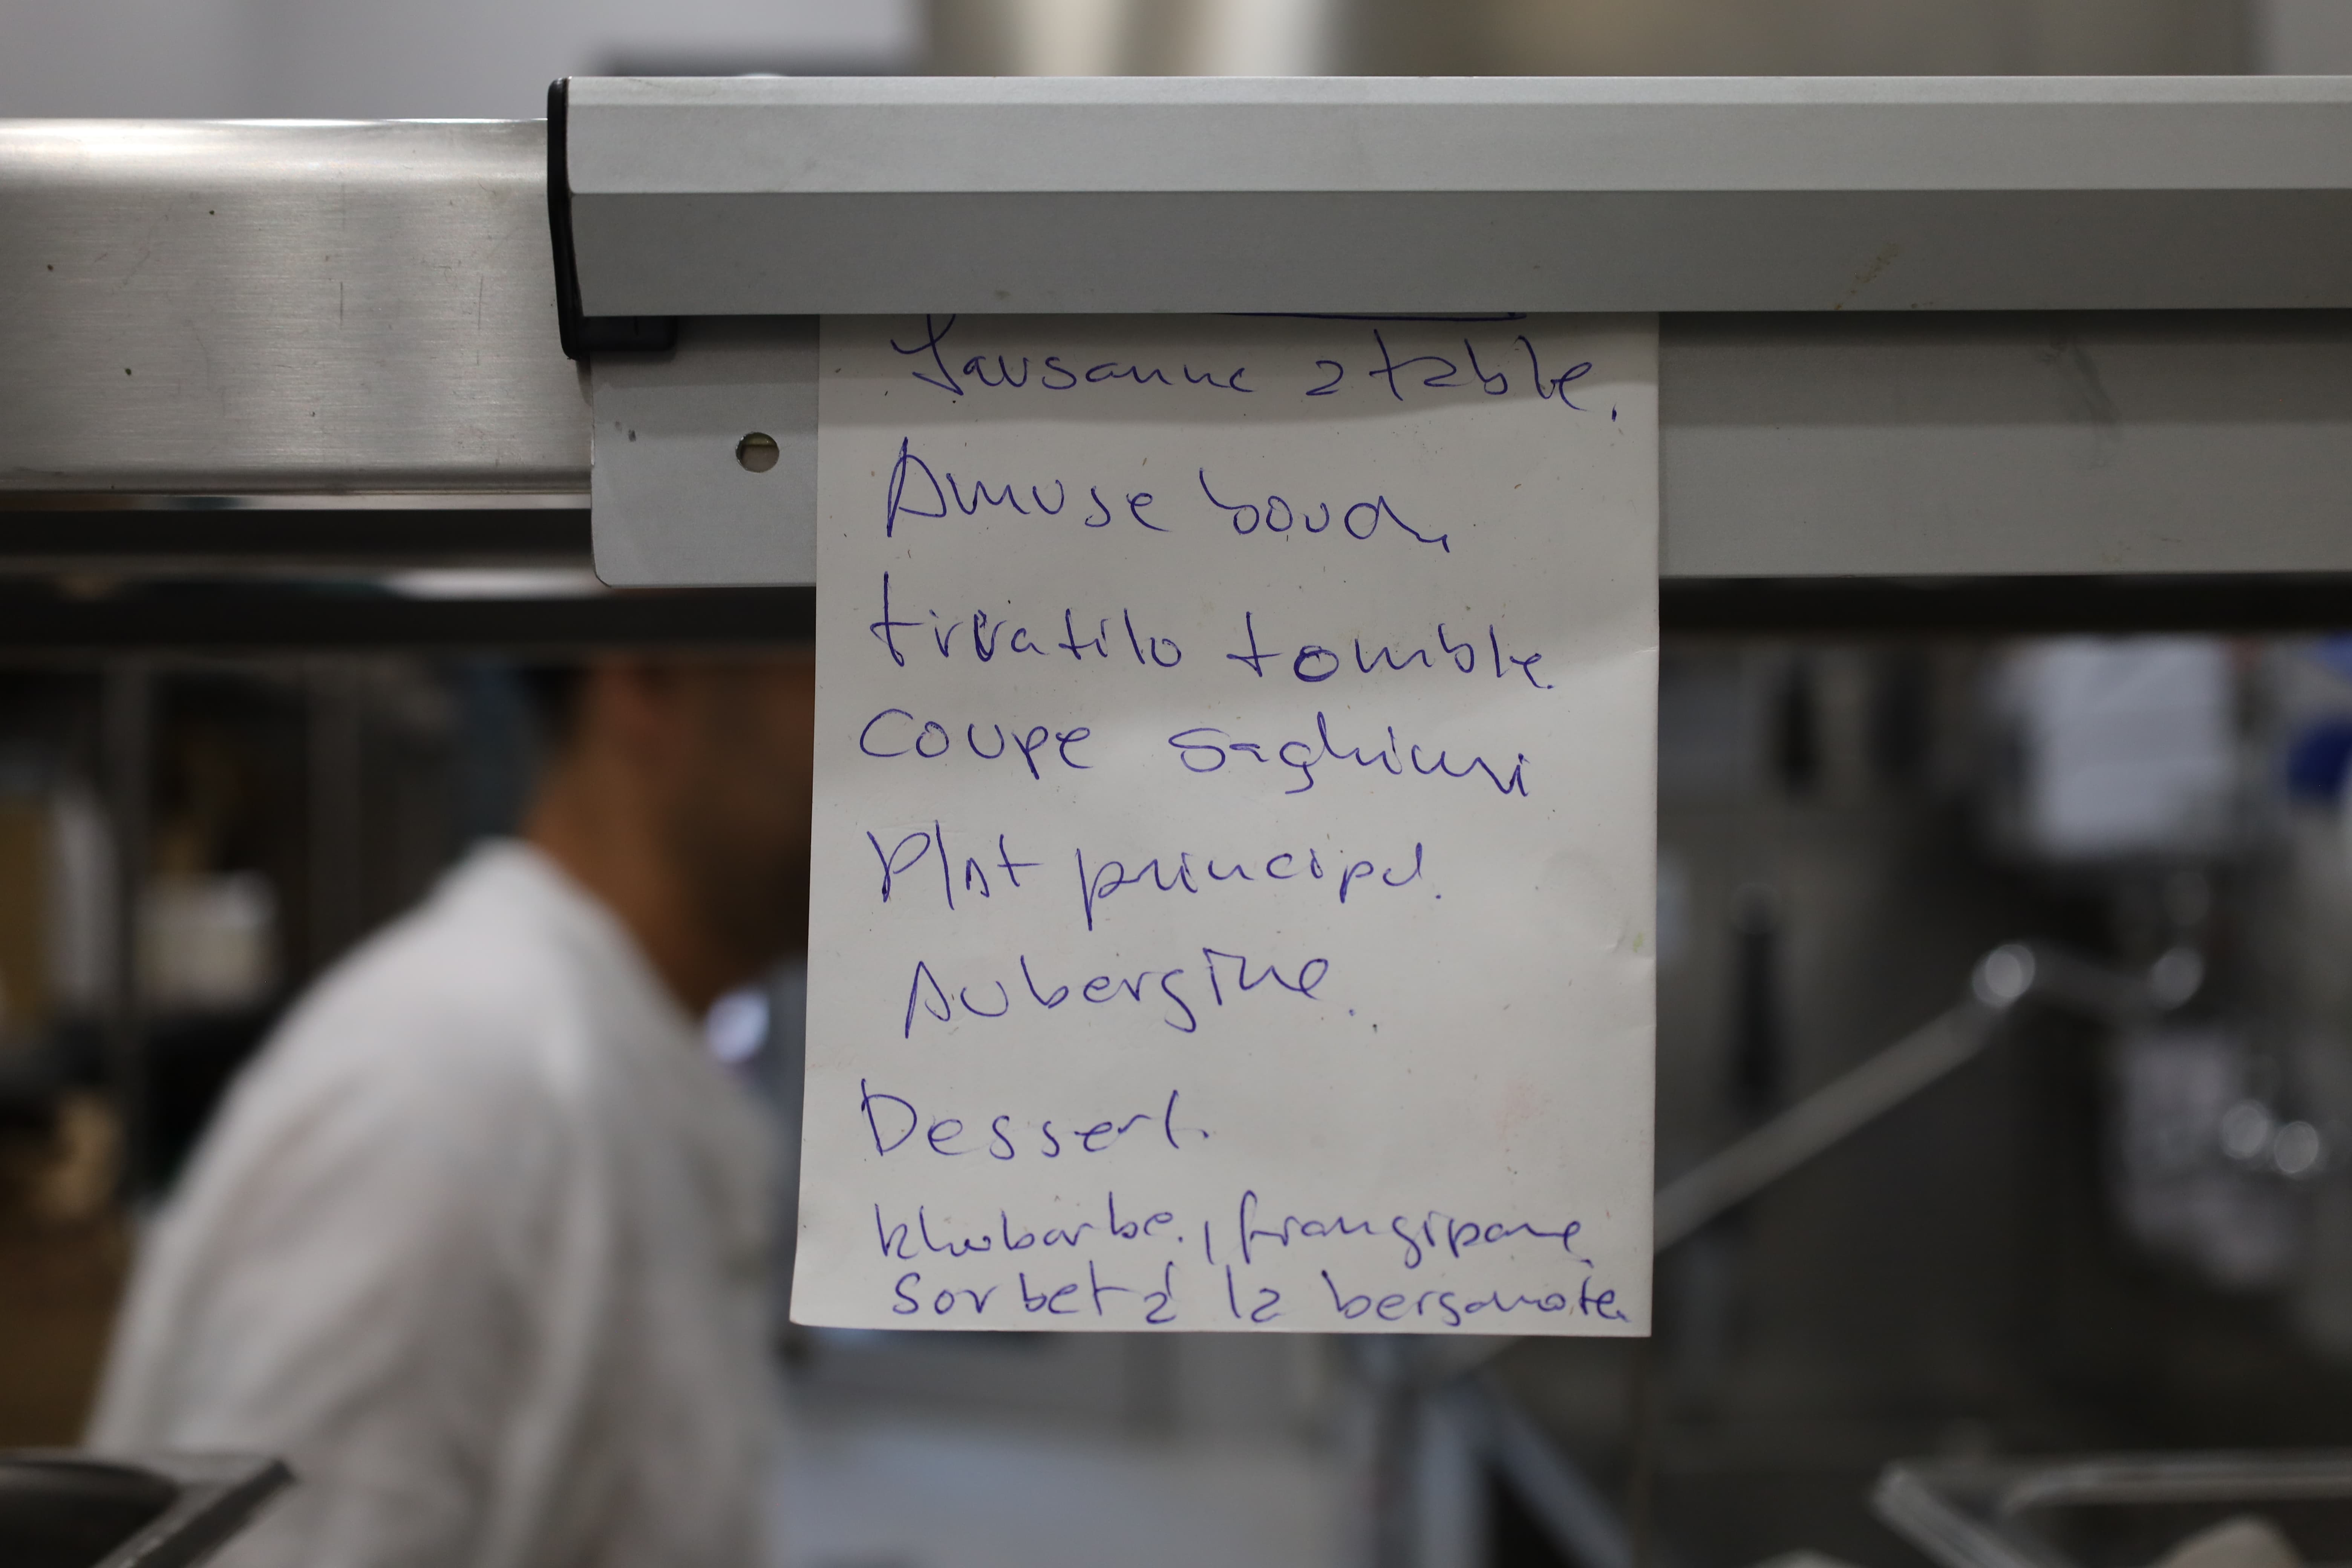 Lausanne a table.
Amuse bouch
tirratilo tomble.
Coupe
Plat principal.
Aubergine.
Dessert.
Rhubarbe, frangipane
Sorbet à la bergamote